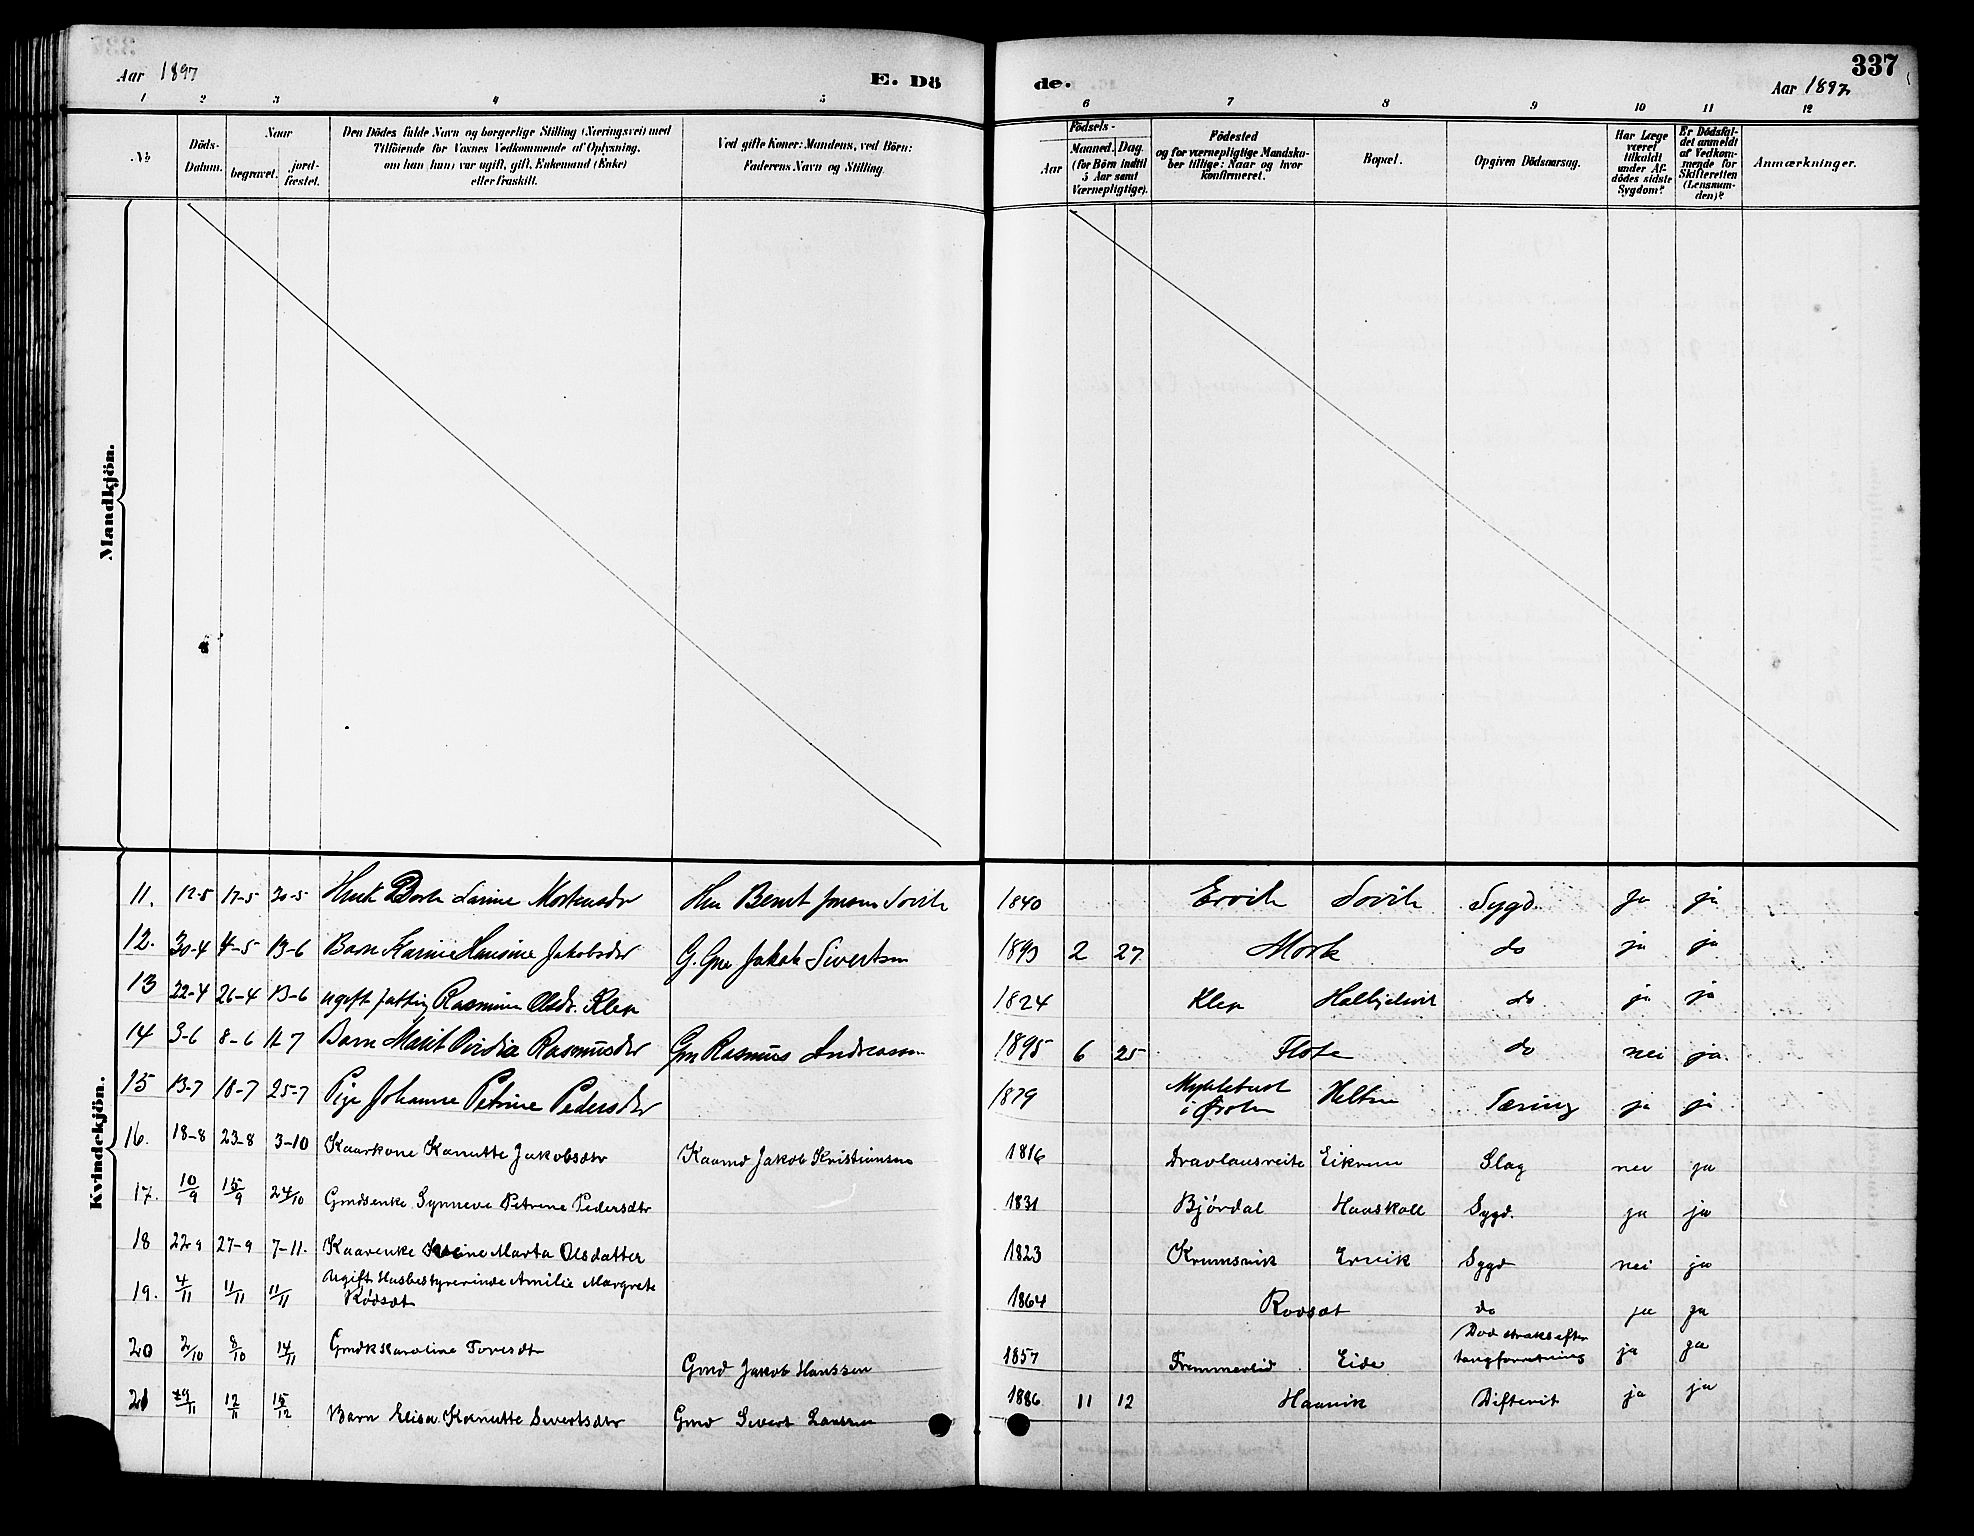 Aar 1897
E. Dö
de.
337
Aar 1897
1 2 3 4 5 6 7 8 9 10 11 12
No
Döds-
Datum.
Naar
begravet.
jord-
fæstet.
Den Dödes fulde Navn og borgerlige Stilling (Næringsvei) med
Tilföiende for Voxnes Vedkommende af Oplysning,
om han (hun) var ugift, gift, Enkemand (Enke)
eller fraskilt.
Ved gifte Koner: Mandens, ved Börn:
Faderens Navn og Stilling
Födsels-
Aar
Maaned. Dag.
(for Börn indtil
5 Aar samt
Værnepligtige).
Födested
og for værnepligtige Mandska-
ber tillige: Naar og hvor
konfirmeret.
Bopæl.
Opgiven Dödsaarsag.
Har Læge
været
tilkaldt
under Af-
dödes sidste
Sygdom?
Er Dödsfal-
det anmeldt
af Vedkom-
mende for
Skifteretten
(Lensman-
den)?
Anmærkninger.
Mandkjön.
Kvindekjön.
11. 12-5 17-5 20-5 Larine Mortensdr Bernt Jonsen Sovik 1840 Ervik Sovik Sygd. ja ja
12. 30-4 4-5 13-6 Barn Karine Hansine Jakobsdr Jakob Sivertsen 1893 2 27 Mork do ja ja
13 22-4 26-4 13-6 ugift fattig Rasmine Olsdr. Klep 1824 Klep do ja ja
14 3-6 8-6 11-7 Barn Marit Rasmusdr Gm Rasmus Andreassen 1895 6 25 Flote do nei ja
15 13-7 18-7 25-7 Pige Johanne Petrine Pedersdr 1879 Myklebust i Ørsten Tæring ja ja
16. 18-8 23-8 3-10 Kaarkone Kanutte Jakobsdtr Kaamd Jakob Kristiansen 1816 Dravlausreite Eikrem Slag nei ja
17. 10/9 15/9 24/10 Gmdsenke Synneve Petrine Pedersdtr 1831 Bjørdal Haaskoll Sygd. ja ja
18 22-9 27-9 7-11. Kaarenke Marta Olsdatter 1823 Krumsvik Ervik Sygd nei ja
19. 4/11 11/11 11/11 Ugift Husbestyrerinde Amilie Margrete
Rødsæt 1864 Rødsæt do ja ja
20 2/10 8/10 14/11 Gmdk Karoline Toresdtr Gmd Jakob Hanssen 1857 Fremmerlid Eide Død straks efter
tangforretning ja ja
21 29/11 12/11 15/12 Barn Elisa Kanutte Sivertsdtr Gmd Sivert Larssen 1886 11 12 Haavik Difterit ja ja